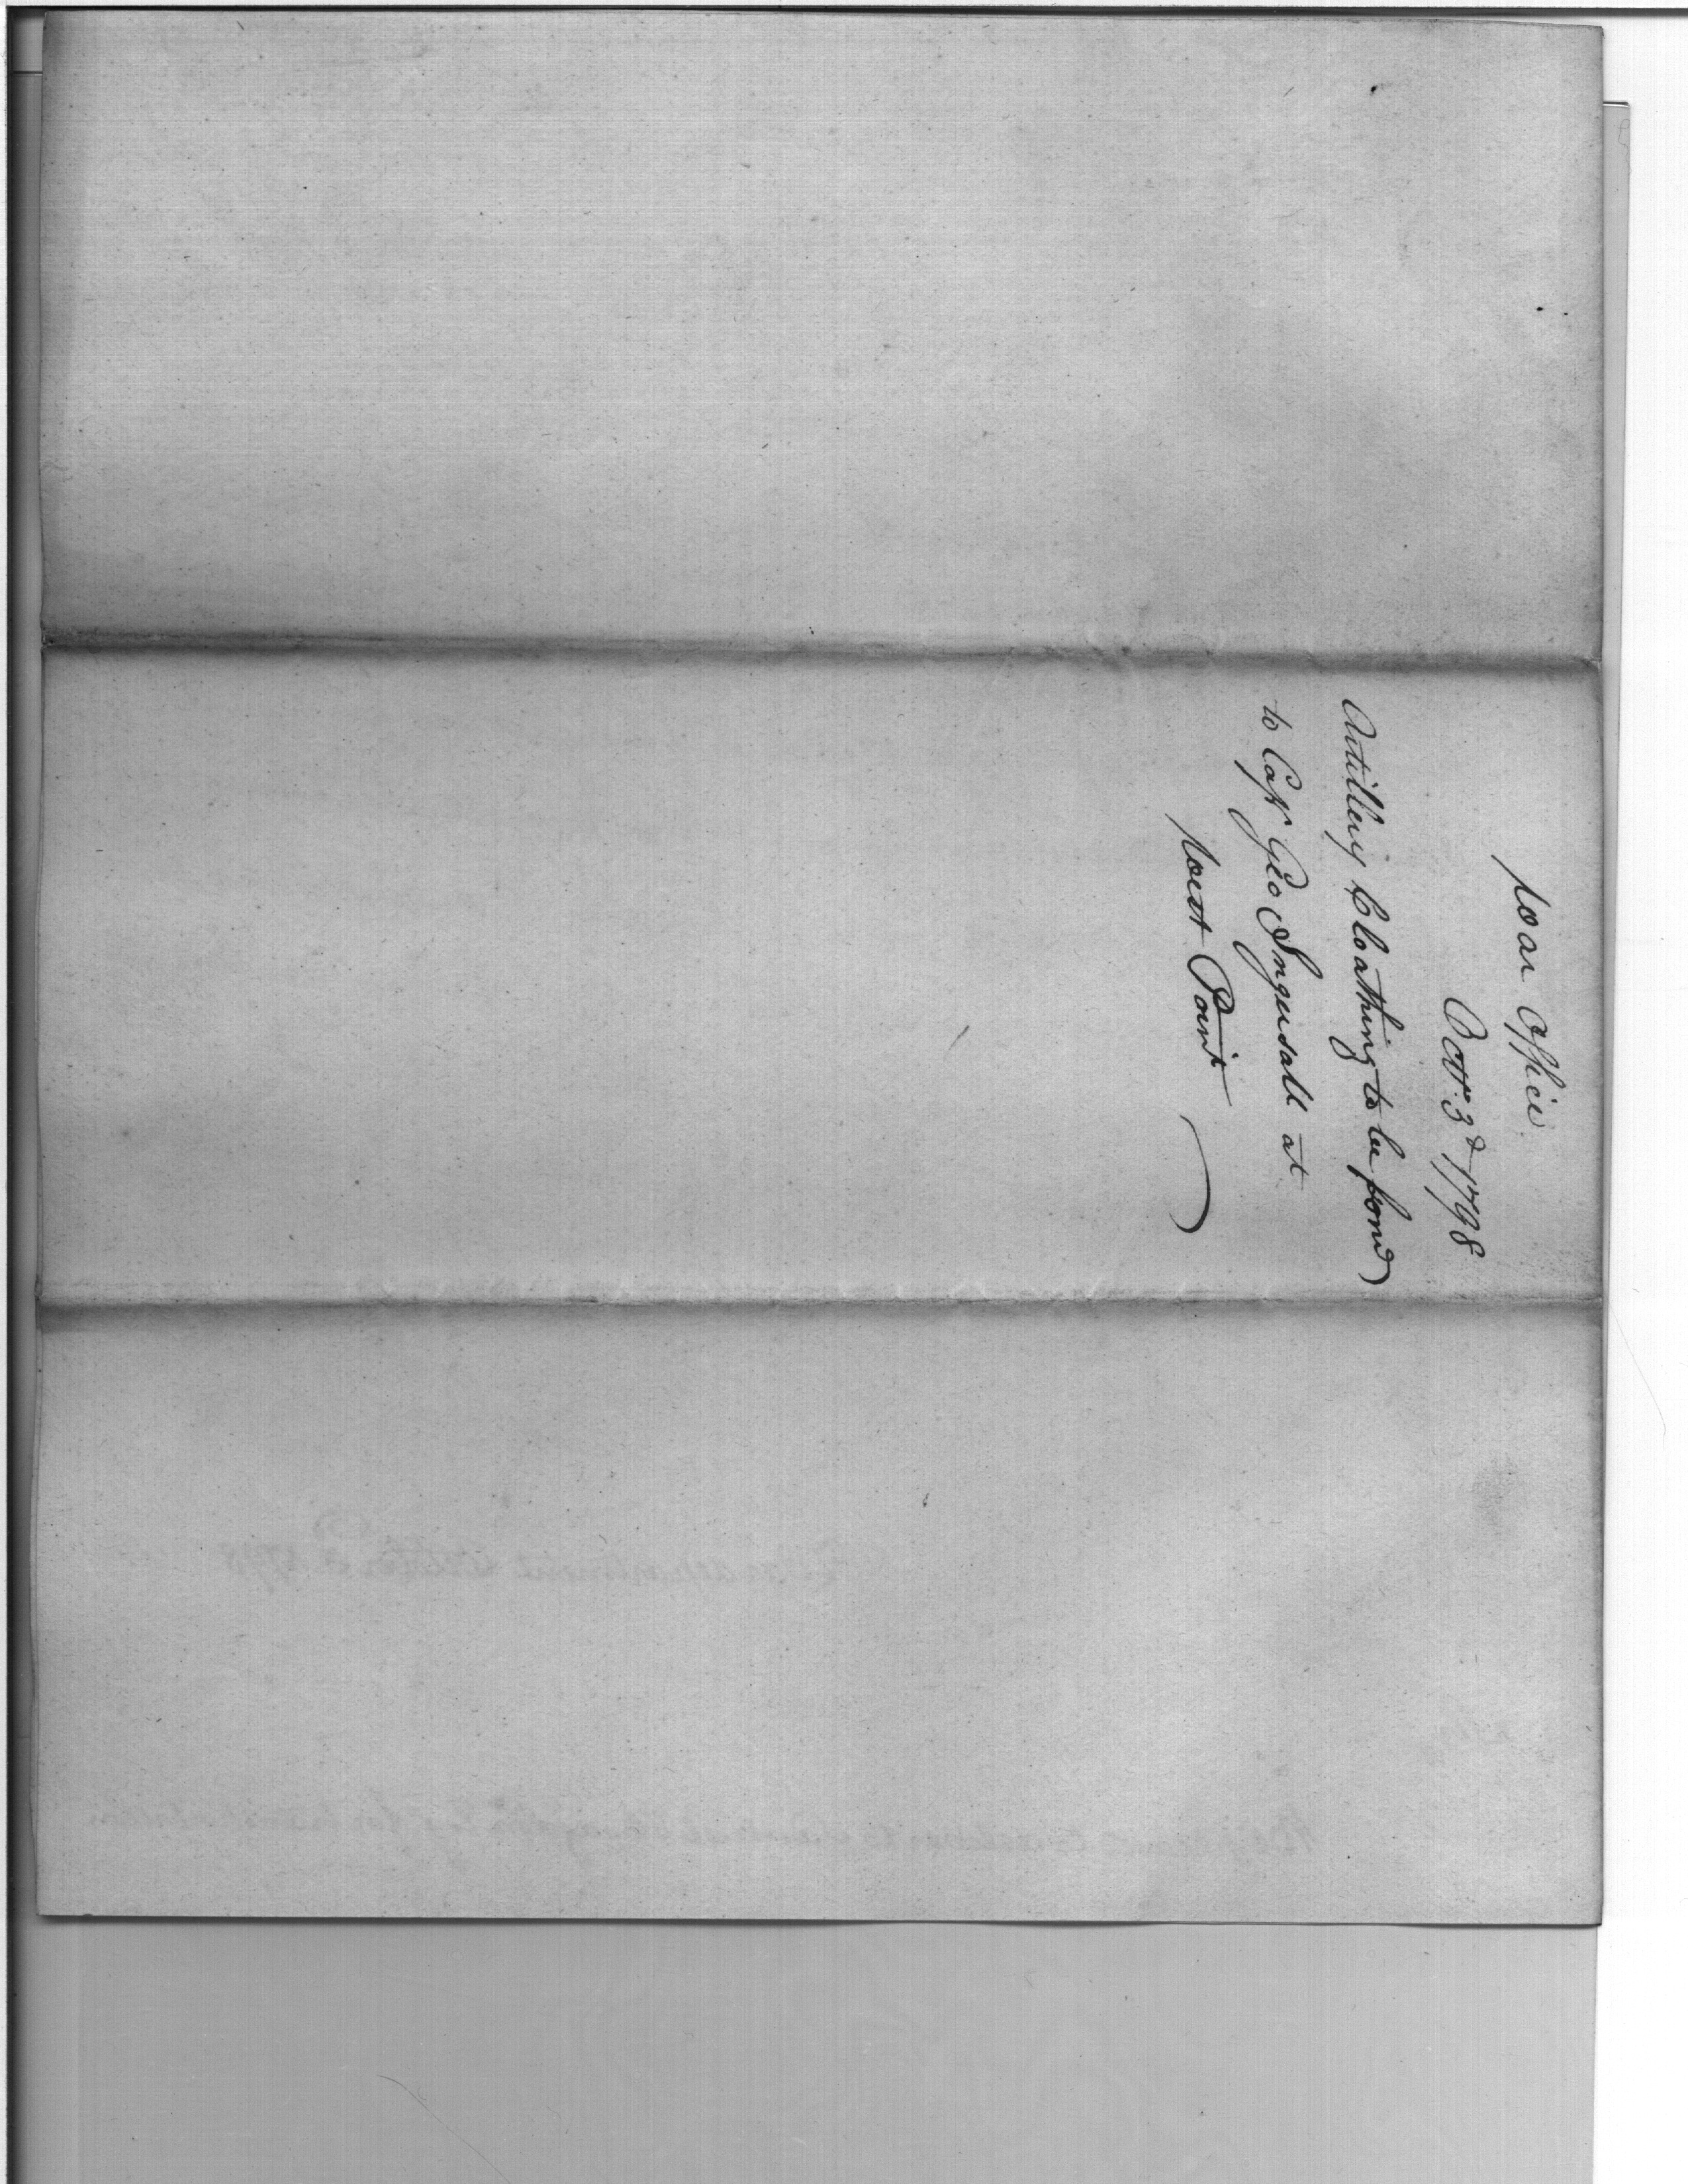 War Office
Octr. 3d 1798
Artillery Cloathing to be forwd
to Capt Geo Ingersoll at
West Point